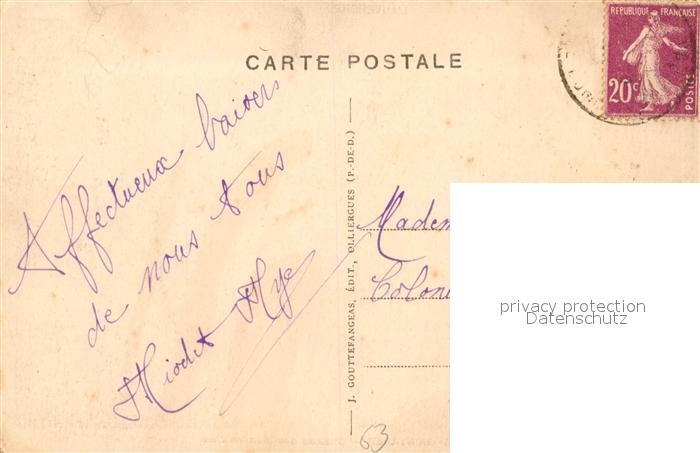 CARTE POSTALE
REPUBLIQUE FRANÇAISE
20c
POSTES
Affectueux baisers
de nous tous
J. GOUTTEFANGEAS, ÉDIT., OLLIERGUES (P.-DE-D.)
Madem
Coloni
privacy protection
Datenschutz
63